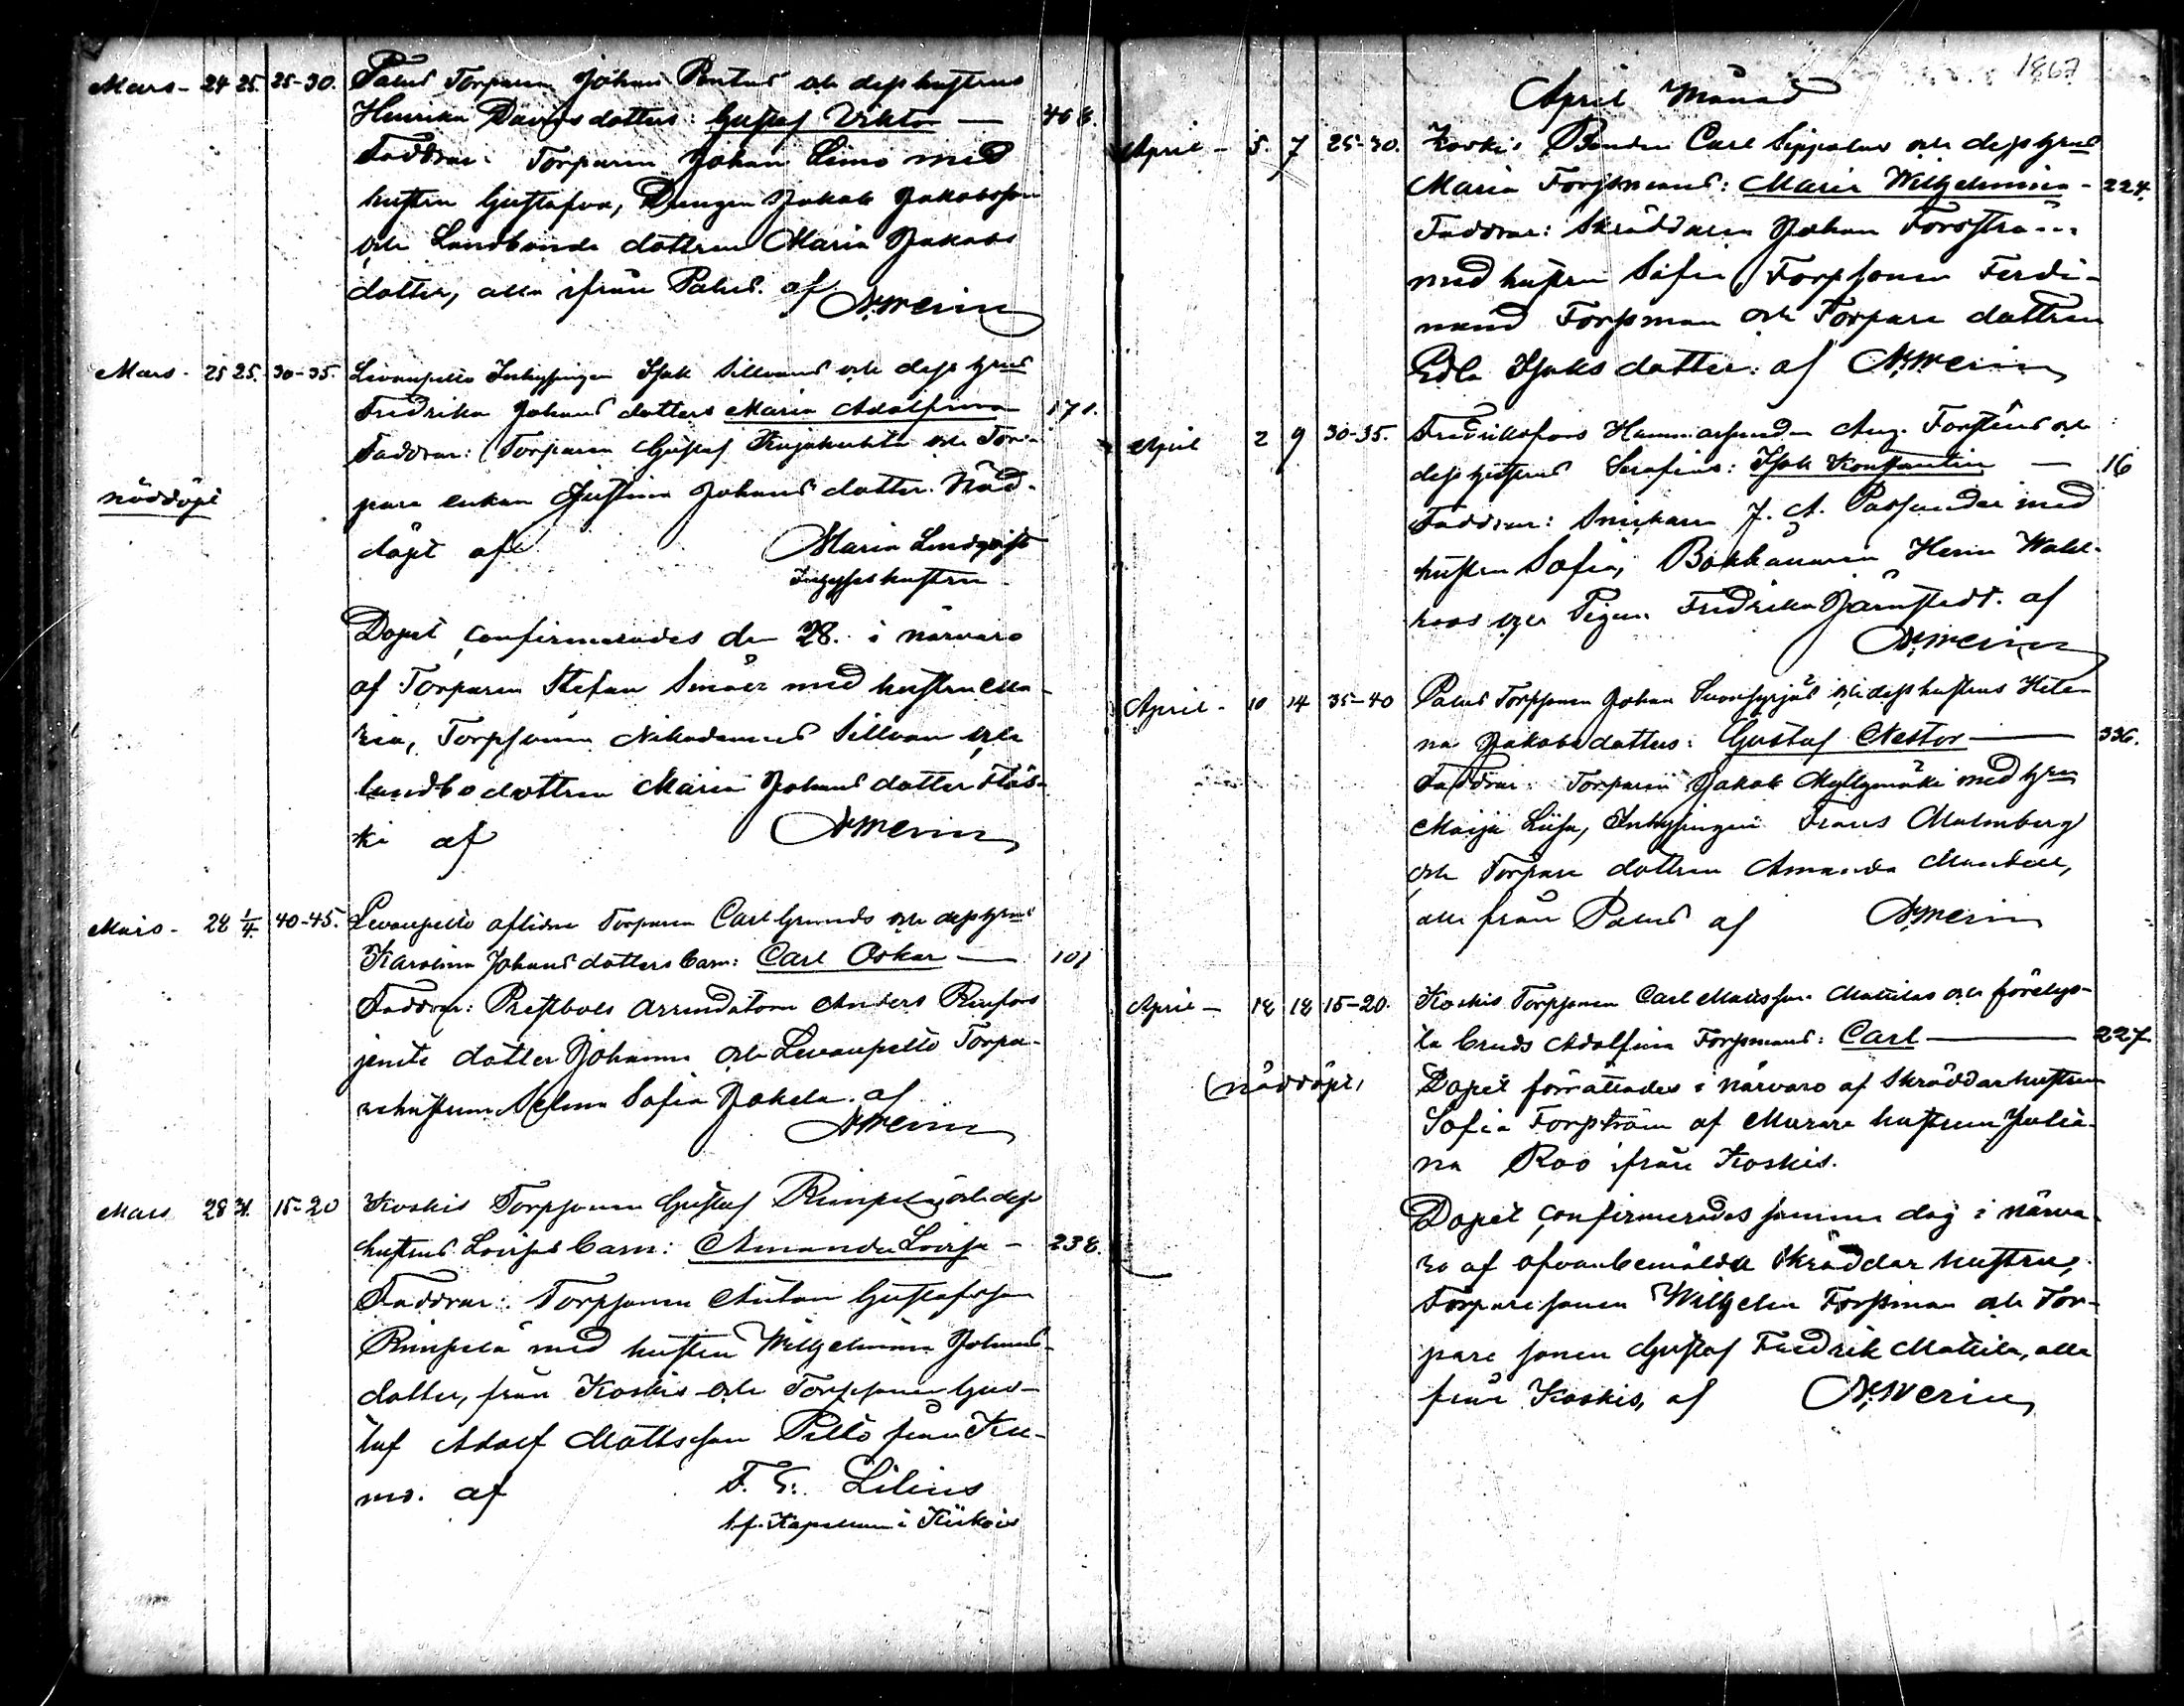 Mars - 24 25. 25-30. Palus Torparen Johan Rentus och dess hustrus
Henrika Davids dotters: Gustaf Viktor — 466.
Faddrar: Torparen Johan Simo med
hustru Gustafva, Drengen Jakob Jakobsson
och Landbonde dottren Maria Jakobs
dotter, alla ifrån Palus. af A. Werin
Mars - 25 25. 30-35. Levanpelto Inhysingen Isak Sillvans och dess hrus
Fredrika Johans dotters Maria Adolfina 171.
Faddrar: Torparen Gustaf och Tor-
nöddöpt
pare enkan Justina Johans dotter. Nöd-
döpt af Maria Lindqvist
Inhyses hustru
Dopet confirmerades den 28. i närvaro
af Torparen Stefan med hustru Ma-
ria, Torpsonen Nikodemus Sillvan och
landbo dottren Maria Johans dotter Fläs-
ki af A Werin
Mars - 28 1/4. 40-45. Levanpelto aflidne Torparen Carl Grunds och dess hrus
Karolina Johans dotters barn: Carl Oskar — 101
Faddrar: Prestbols Arrendatorn Anders
jemte dotter Johanna och Levanpelto Torpa-
rehustrun Selma Sofia Jakola. af
A Werin
Mars 28 31. 15-20 Koskis Torpsonen Gustaf Rimpelä och dess
hustrus Lovisas barn: Amanda Lovisa - 238.
Faddrar: Torpsonen Anton Gustafsson
Rimpelä med hustru Wilhelmina Johans-
dotter, från Koskis och Torpsonen Gus-
taf Adolf Mattsson Pelto från Ku-
mo. af F. G. Lilius
t.f. Kapellan i Kiikois
1867
April Månad
April - 5. 7 25-30. Koskis Bonden Carl Seppälas och dess hrus
Maria Forssmans: Maria Wilhelmina - 224.
Faddrar: Skräddaren Johan Forsströ...
med hustru Sofia, Torpsonen Ferdi-
nand Forssman och Torpare dottren
Edla Isaks dotter: af A. Werin
April 2 9 30-35. Fredriksfors Hammarsmeden Aug. Forsténs och
dess hustrus Serafinas: Isak Konstantin — 16
Faddrar: Snickaren J. A. med
hustru Sofia, Bokhållaren Herrn Wahl-
roos och Pigan Fredrika Järnstedt. af
A. Werin
April - 10 14 35-40 Palus Torpsonen Johan Suonsyrjäs och dess hustrus Hele-
na Jakobs dotters: Gustaf Nestor — 336.
Faddrar: Torparen Jakob Myllymäki med hru
Maija Liisa, Inhysingen Frans Malmberg
och Torpare dottren Amanda
alla från Palus af A. Werin
April - 18 18 15-20. Koskis Torpsonen Carl Matsson Mattilas och förelof-
(nöddöpt)
ta bruds Adolfina Forssmans: Carl — 227.
Dopet förrättades i närvaro af Skräddarhustrun
Sofia Forsström af Murare hustrun Julia-
na Roo ifrån Koskis.
Dopet confirmerades samma dag i närva-
ro af ofvanbemälda Skräddar hustru,
Torparesonen Wilhelm Forssman och Tor-
pare sonen Gustaf Fredrik Mattila, alla
från Koskis, af A. Werin